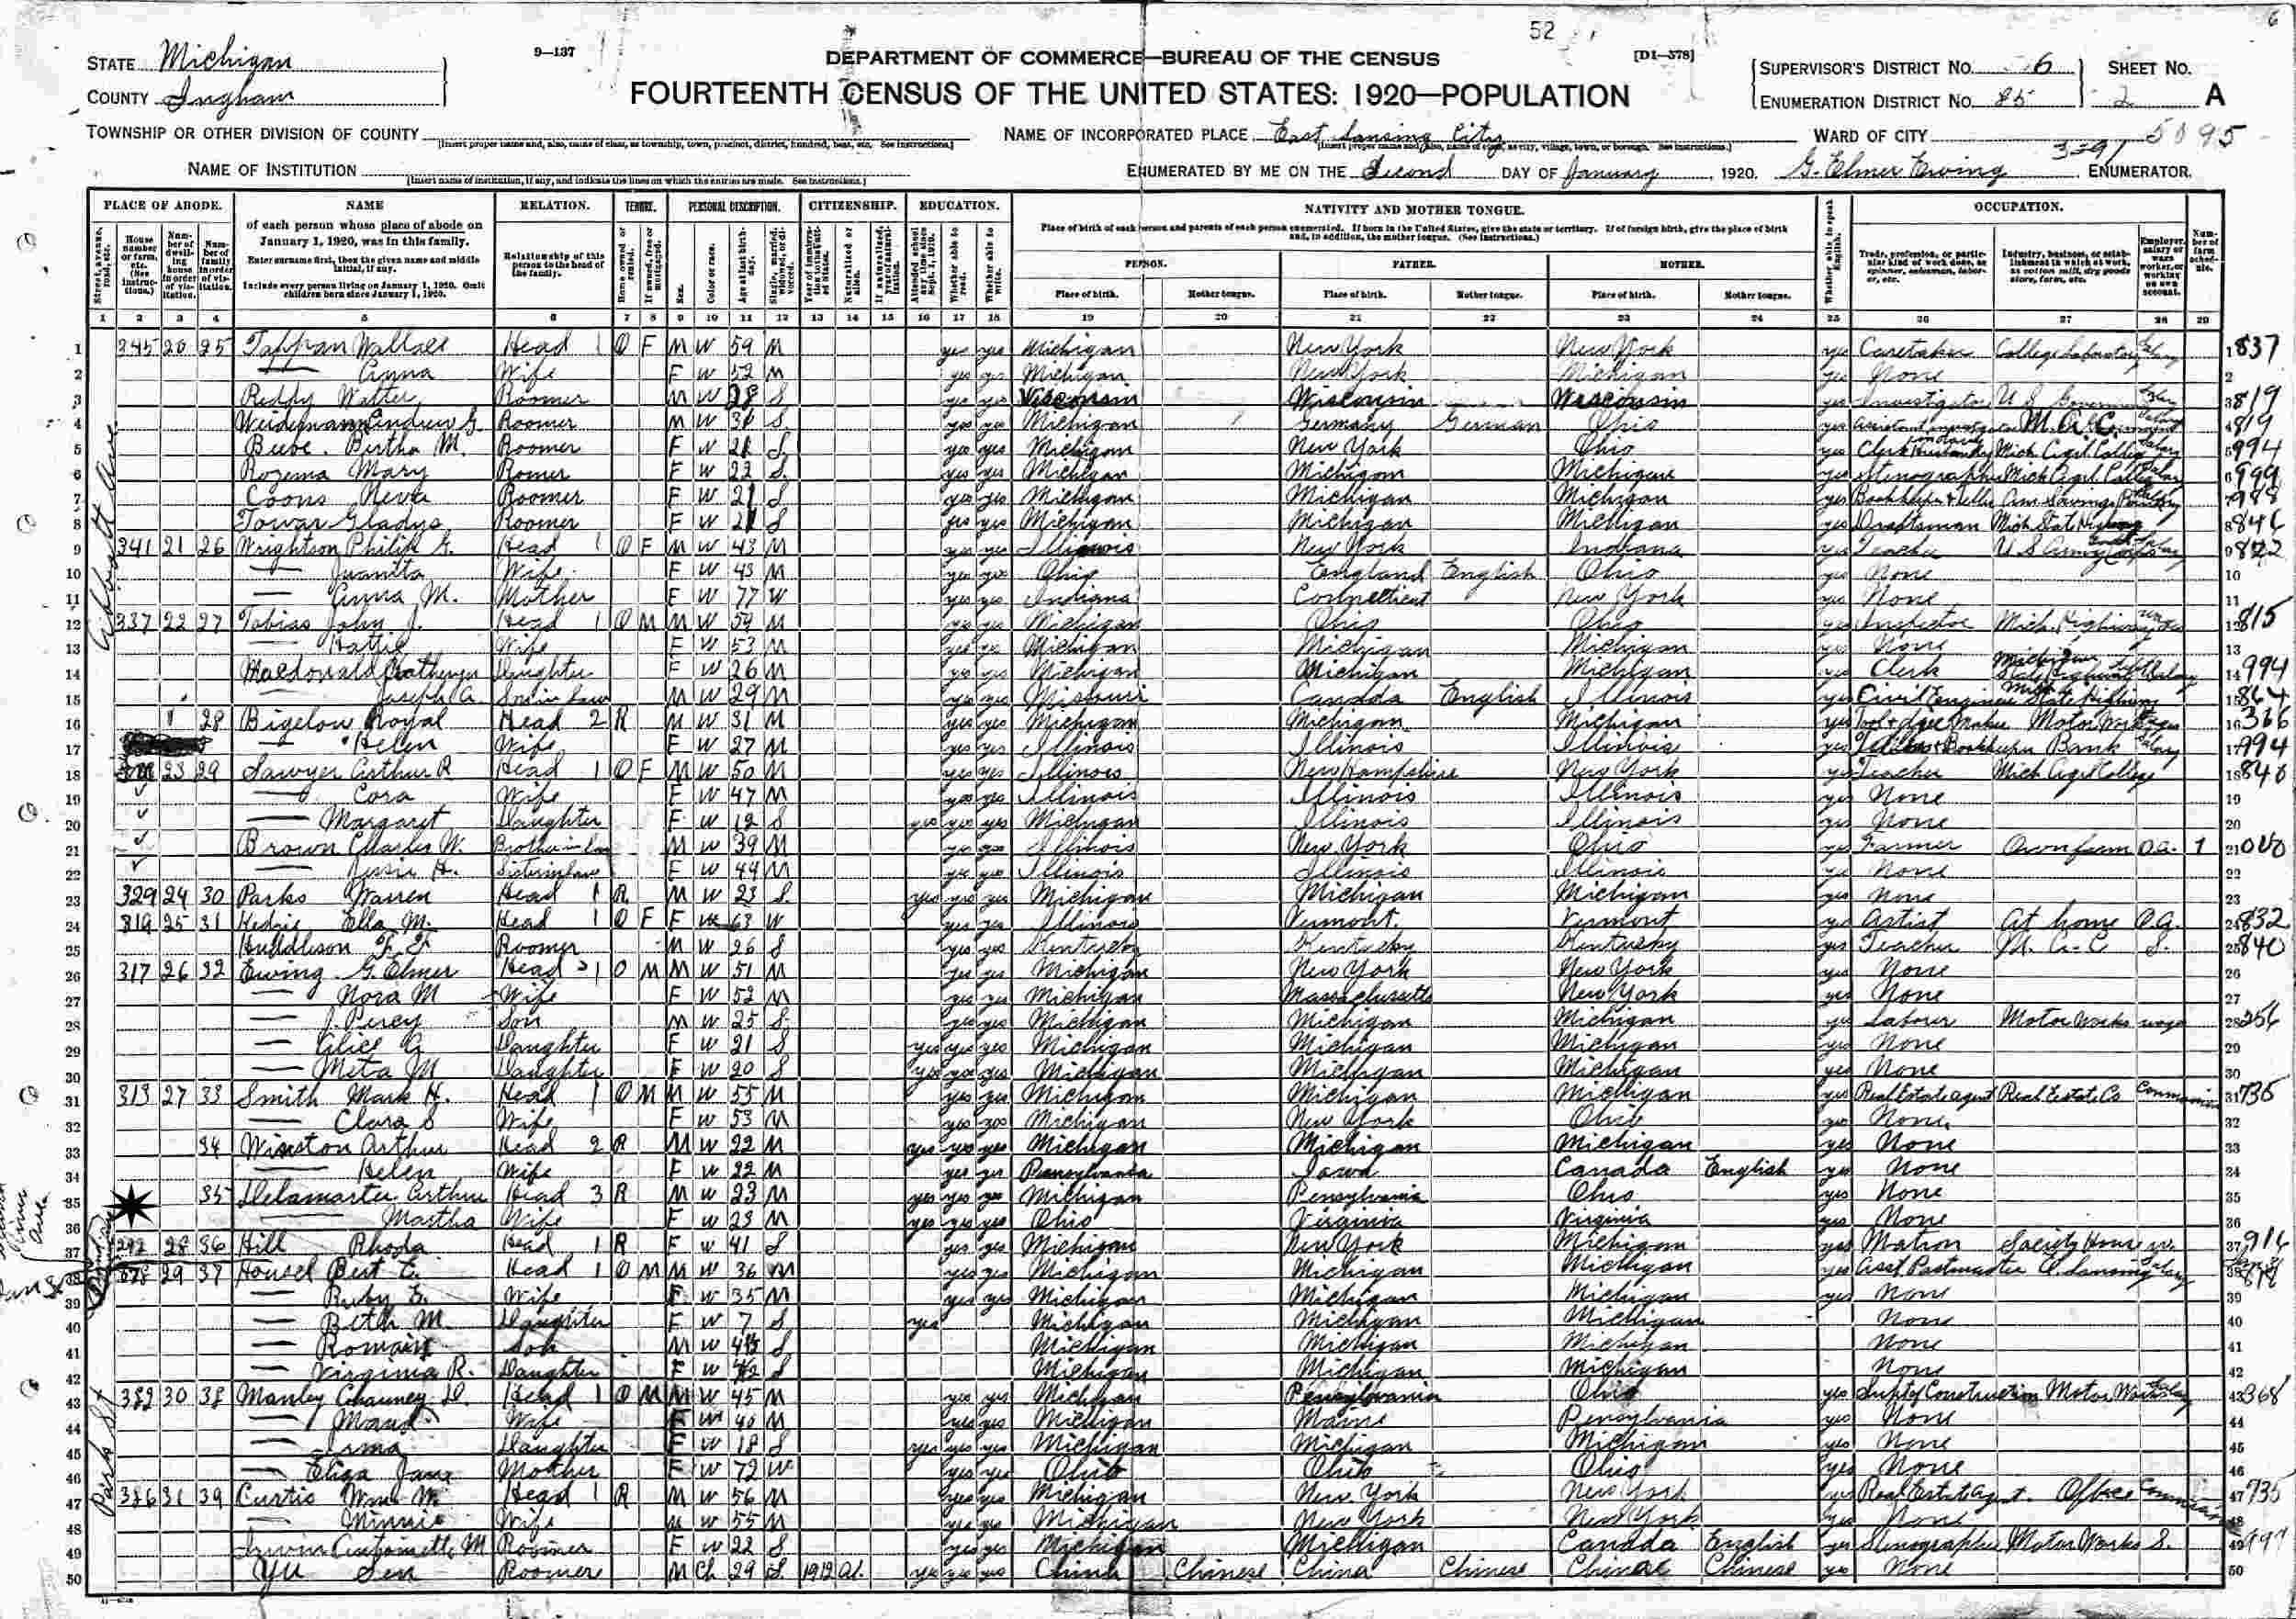 52
6
STATE Michigan
COUNTY Ingham
9—137
DEPARTMENT OF COMMERCE—BUREAU OF THE CENSUS
[D1—578]
FOURTEENTH CENSUS OF THE UNITED STATES: 1920—POPULATION
SUPERVISOR'S DISTRICT No. 6
ENUMERATION DISTRICT No. 85
SHEET No. 2 A
TOWNSHIP OR OTHER DIVISION OF COUNTY
[Insert proper name and, also, name of class, as township, town, precinct, district, hundred, beat, etc. See instructions.]
NAME OF INCORPORATED PLACE East Lansing City
[Insert proper name and, also, name of class, as city, village, town, or borough. See instructions.]
WARD OF CITY 5095
3391
NAME OF INSTITUTION
[Insert name of institution, if any, and indicate the lines on which the entries are made. See instructions.]
ENUMERATED BY ME ON THE Second DAY OF January, 1920. G. Elmer Ewing ENUMERATOR.
PLACE OF ABODE. NAME RELATION. TENURE. PERSONAL DESCRIPTION. CITIZENSHIP. EDUCATION. NATIVITY AND MOTHER TONGUE. OCCUPATION.
of each person whose place of abode on January 1, 1920, was in this family.
Enter surname first, then the given name and middle initial, if any.
Include every person living on January 1, 1920. Omit children born since January 1, 1920.
Relationship of this person to the head of the family.
Place of birth of each person and parents of each person enumerated. If born in the United States, give the state or territory. If of foreign birth, give the place of birth and, in addition, the mother tongue. (See instructions.)
PERSON. FATHER. MOTHER.
Place of birth. Mother tongue. Place of birth. Mother tongue. Place of birth. Mother tongue.
1 2 3 4 5 6 7 8 9 10 11 12 13 14 15 16 17 18 19 20 21 22 23 24 25 26 27 28 29
1 345 20 25 Tappan Wallace Head 1 O F M W 59 M yes yes Michigan New York New York yes Caretaker College Laboratory Salary 837
2 — Anna Wife F W 52 M yes yes Michigan New York Michigan yes None
3 Reddy Walter Roomer M W 38 S yes yes Wisconsin Wisconsin Wisconsin yes Investigator U S Government Salary 819
4 Weidemann Andrew G. Roomer M W 30 S yes yes Michigan Germany German Ohio yes M.A.C. 819
5 Beebe Bertha M. Roomer F W 21 S yes yes Michigan New York Ohio yes Clerk Mich Agrl College Salary 994
6 Rozema Mary Romer F W 22 S yes yes Michigan Michigan Michigan yes Stenographer Mich Agrl College 999
7 Coons Neva Roomer F W 21 S yes yes Michigan Michigan Michigan yes Bookkeeper & Teller Am Savings 988
8 Towar Gladys Roomer F W 21 S yes yes Michigan Michigan Michigan yes Draftsman Mich State Highway 846
9 341 21 26 Wrightson Philip G. Head 1 O F M W 43 M yes yes Illinois New York Indiana yes Teacher U S Army 822
10 — Juanita Wife F W 43 M yes yes Ohio England English Ohio yes None
11 — Anna M. Mother F W 77 W yes yes Indiana Connecticut New York yes None
12 337 22 27 Tobias John J. Head 1 O M M W 54 M yes yes Michigan Ohio Ohio yes Inspector Mich. Highway 815
13 — Hattie Wife F W 53 M yes yes Michigan Michigan Michigan yes None
14 Macdonald Catheryn Daughter F W 26 M yes yes Michigan Michigan Michigan yes Clerk Michigan State Highway Dept Salary 994
15 — Joseph A. Son in law M W 29 M yes yes Missouri Canada English Illinois yes Civil Engineer State Highway 864
16 28 Bigelow Royal Head 2 R M W 31 M yes yes Michigan Michigan Michigan yes Tool & die Maker Motor Works Wages 366
17 — Helen Wife F W 27 M yes yes Illinois Illinois Illinois yes Bookkeeper Bank Salary 994
18 23 29 Sawyer Arthur R Head 1 O F M W 50 M yes yes Illinois New Hampshire New York yes Teacher Mich Agrl College 840
19 — Cora Wife F W 47 M yes yes Illinois Illinois Illinois yes None
20 — Margaret Daughter F W 12 S yes yes yes Michigan Illinois Illinois yes None
21 Brown Charles W. Brother in law M W 39 M yes yes Illinois New York Ohio yes Farmer Own farm O.A. 1 000
22 — Jessie H. Sister in law F W 44 M yes yes Illinois Illinois Illinois yes None
23 329 24 30 Parks Warren Head 1 R M W 23 S yes yes yes Michigan Michigan Michigan yes None
24 819 25 31 Kedzie Ella M. Head 1 O F F W 63 W yes yes Illinois Vermont. Vermont yes Artist At home O.A. 832
25 Huddleson F. F Roomer M W 26 S yes yes Kentucky Kentucky Kentucky yes Teacher M. A. C S. 840
26 317 26 32 Ewing G. Elmer Head 1 O M M W 51 M yes yes Michigan New York New York yes None
27 — Nora M Wife F W 52 M yes yes Michigan Massachusetts New York yes None
28 — J. Percy Son M W 25 S yes yes Michigan Michigan Michigan yes Laborer Motor Works wage 256
29 — Alice A Daughter F W 21 S yes yes yes Michigan Michigan Michigan yes None
30 — Meta M Daughter F W 20 S yes yes yes Michigan Michigan Michigan yes None
31 313 27 33 Smith Mark H. Head 1 O M M W 55 M yes yes Michigan Michigan Michigan yes Real Estate agent Real Estate Co Commission 735
32 — Clara S Wife F W 53 M yes yes Michigan New York Ohio yes None
33 34 Winston Arthur Head 2 R M W 22 M yes yes yes Michigan Michigan Michigan yes None
34 — Helen Wife F W 22 M yes yes Pennsylvania Iowa Canada English yes None
35 35 Delamarter Arthur Head 3 R M W 23 M yes yes yes Michigan Pensylvania Ohio yes None
36 — Martha Wife F W 23 M yes yes yes Ohio Virginia Virginia yes None
37 292 28 36 Hill Rhoda Head 1 R F W 41 S yes yes Michigan New York Michigan yes Matron Society House w. 914
38 378 29 37 Housel Bert E. Head 1 O M M W 36 M yes yes Michigan Michigan Michigan yes Asst Postmaster E. Lansing Salary 878
39 — Ruby E. Wife F W 35 M yes yes Michigan Michigan Michigan yes None
40 — Beth M. Daughter F W 7 S yes Michigan Michigan Michigan None
41 — Romain Son M W S Michigan Michigan Michigan None
42 — Virginia R. Daughter F W S Michigan Michigan Michigan None
43 382 30 38 Manley Chauncy D. Head 1 O M M W 45 M yes yes Michigan Pensylvania Ohio yes Supt of Construction Motor Works Salary 368
44 — Maud Wife F W 40 M yes yes Michigan Maine Pensylvania yes None
45 — Irma Daughter F W 18 S yes yes yes Michigan Michigan Michigan yes None
46 — Eliza Jane Mother F W 72 W yes yes Ohio Ohio Ohio yes None
47 386 31 39 Curtis Wm M. Head 1 R M W 56 M yes yes Michigan New York New York yes Real Estate Agent. Office Commission 735
48 — Minnie Wife W 55 M yes yes Michigan New York New York yes None
49 Irwin Antoinette M Roomer F W 22 S yes yes Michigan Michigan Canada English yes Stenographer Motor Works S. 997
50 Yu Sen Roomer M Ch 29 S 1912 Al. yes yes yes China Chinese China Chinese China Chinese yes None
Abbott Ave
Park St